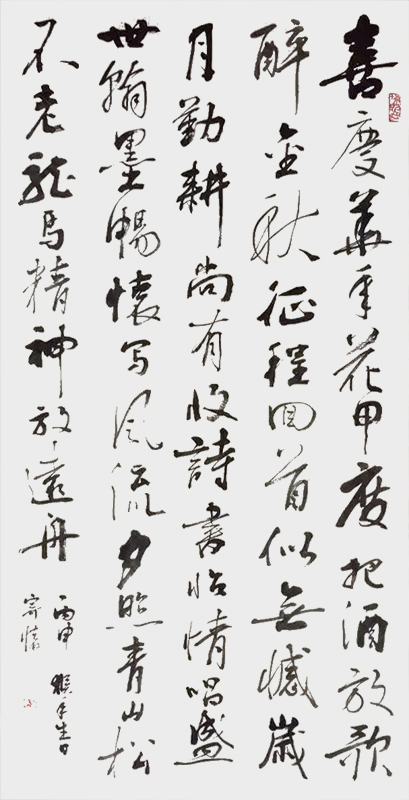 喜慶華年花甲度把酒放歌
醉金秋征程回首似無憾歲
月勤耕尚有收詩書怡情唱盛
世翰墨暢懷写風流夕照青山松
不老龍馬精神放遠舟
丙申猴年生日
寄懷